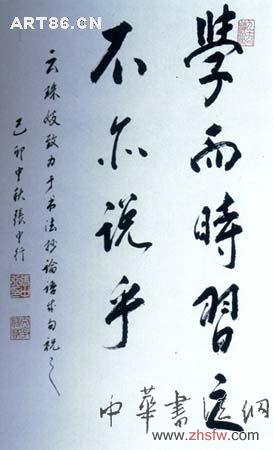 ART86.CN
學而時習之
不亦说乎
云珠致力于书法抄论语成句祝之
己卯中秋張中行
中華書法网
www.zhsfw.com